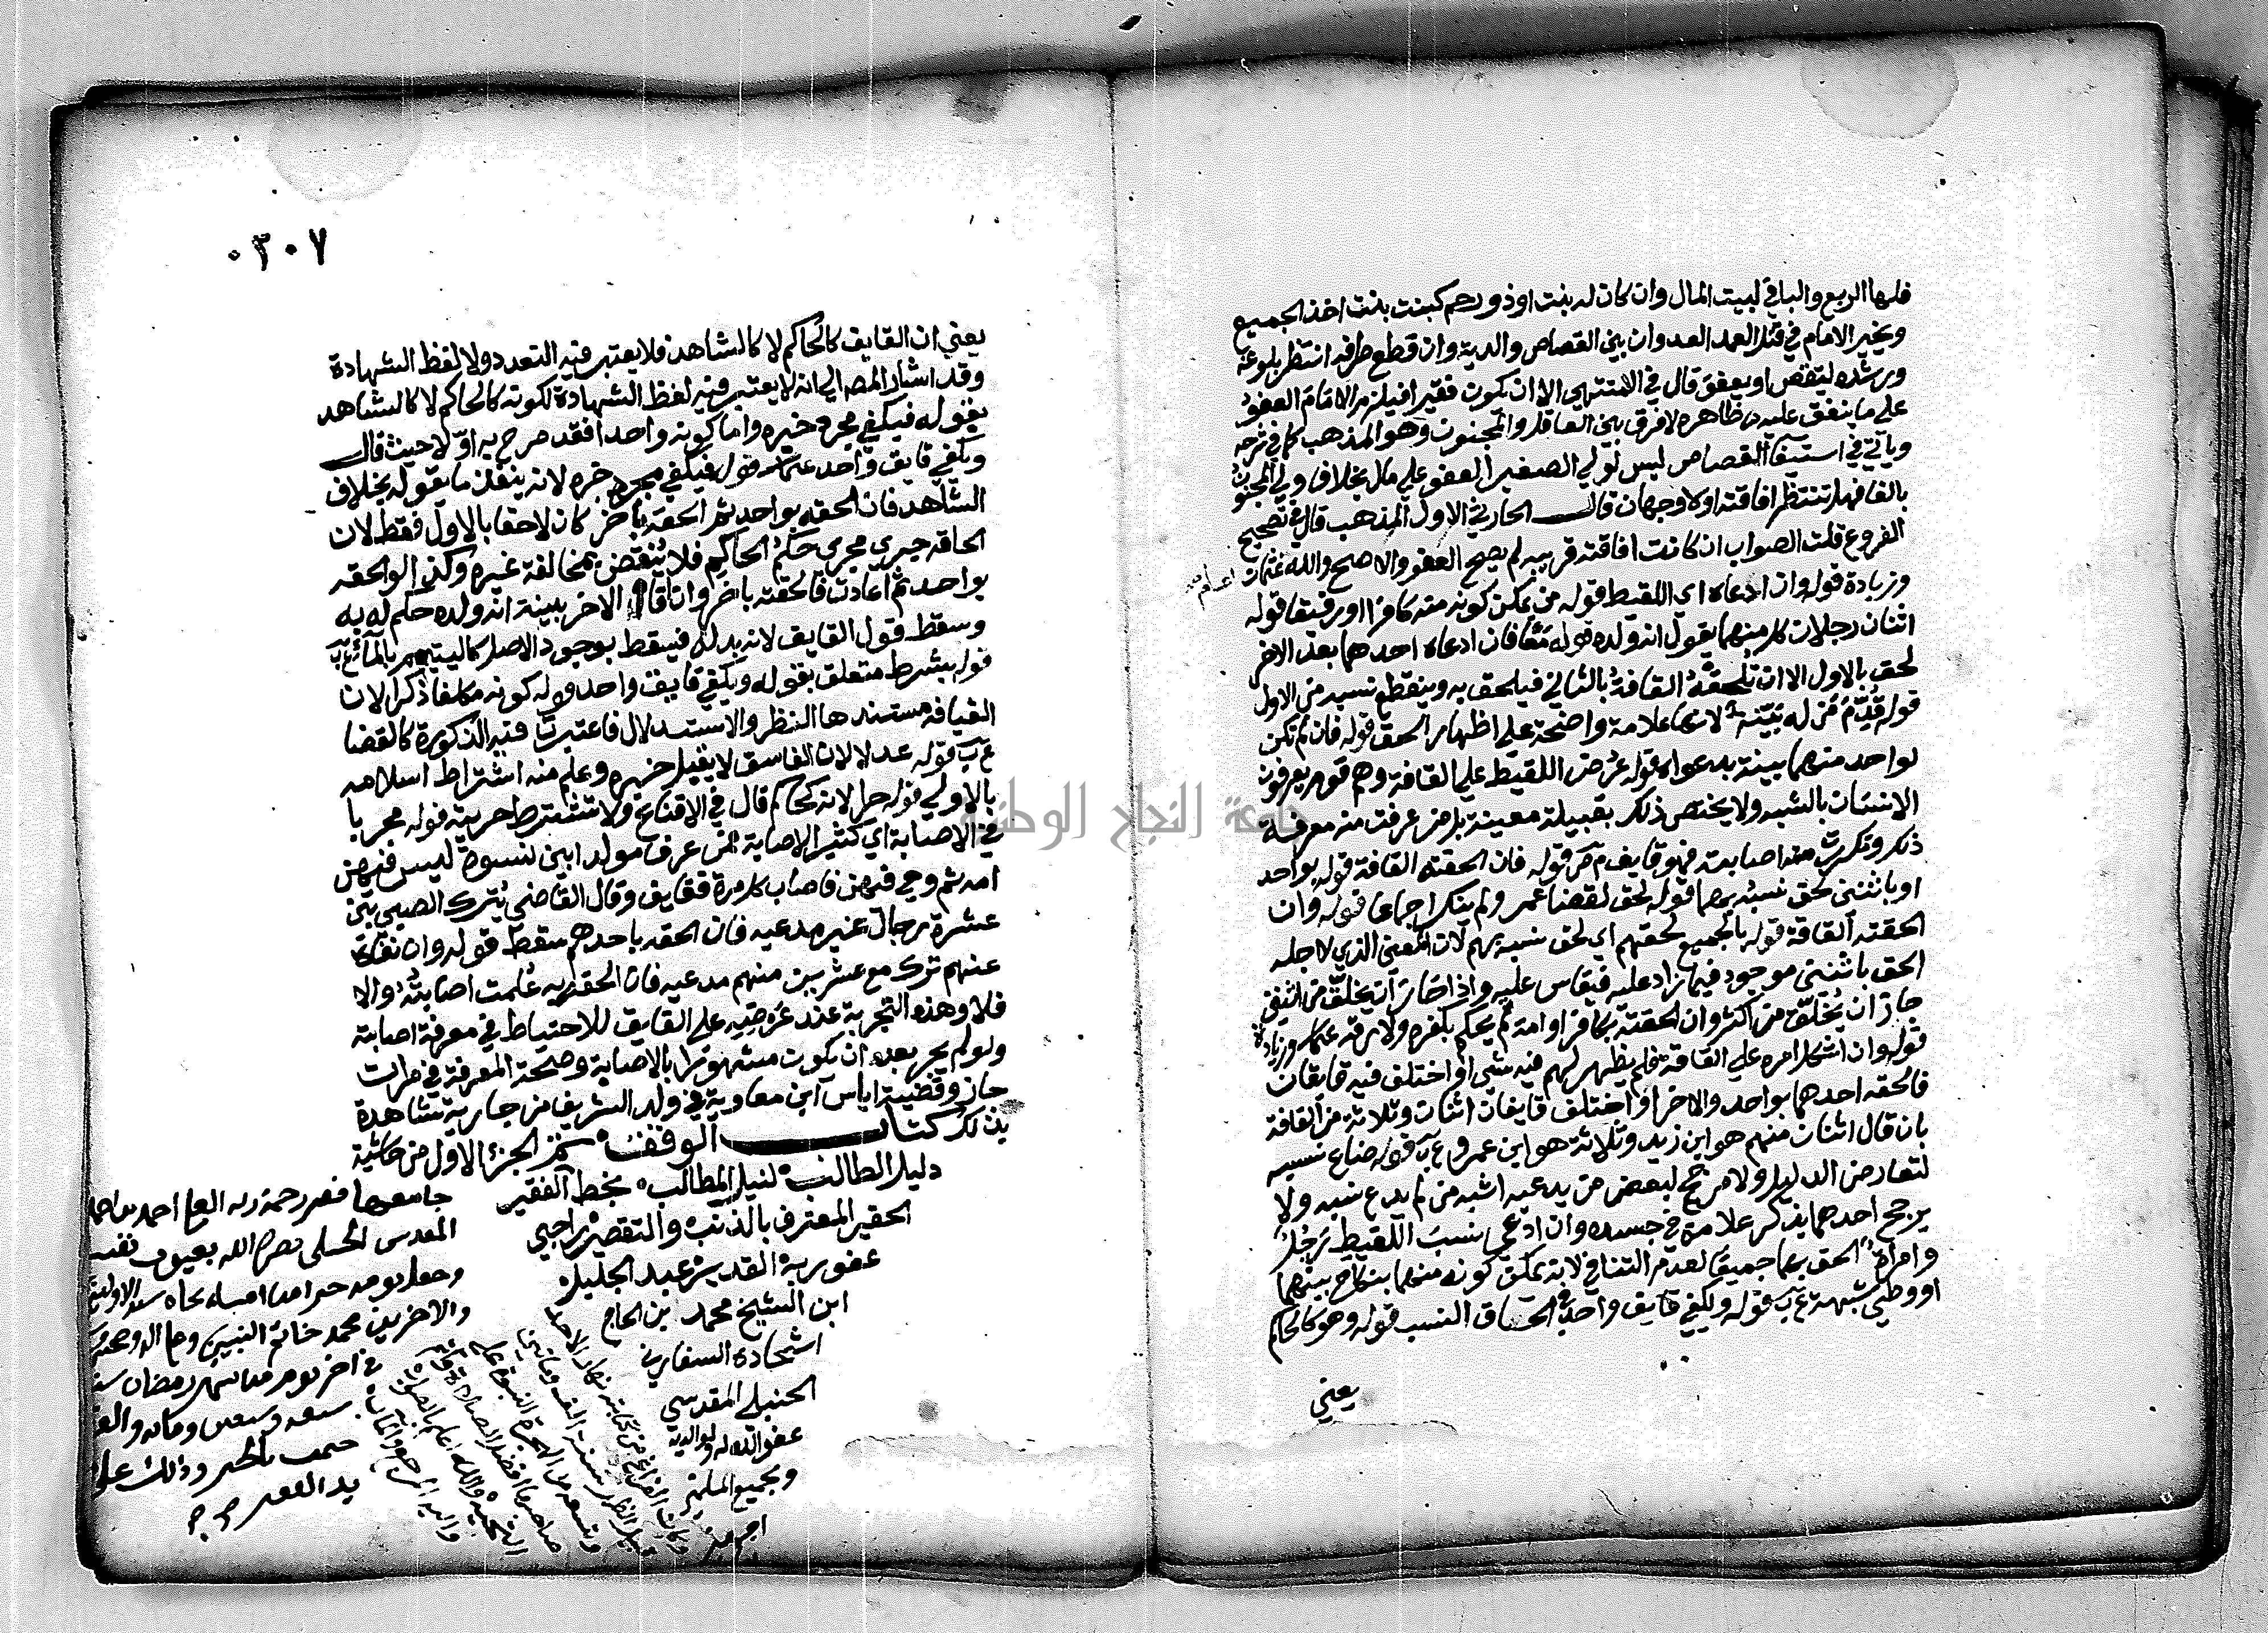 فلها الربع والباقي لبيت المال وان كان له بنت او ذو رحم كبنت بنت اخذ الجميع
ويخير الامام في قتل العمد العدوان بين القصاص والدية وان قطع طرفه انتظر بلوغه
ورشده ليقتص او يعفو قال في المنتهى الا ان يكون فقيرا فيلزم الامام العفو
على ما ينفق عليه وظاهره لا فرق بين العاقل والمجنون وهو المذهب كما في شرحه
وياتي في استيفآ القصاص ليس لولي الصغير العفو على مال بخلاف ولي المجنون
بالغا فهل تنتظر افاقته او لا وجهان قال الحارثي الاول المذهب قال في تصحيح
الفروع قلت الصواب ان كانت افاقته قريبه لم يصح العفو والا صح والله اعلم عثمان
وزيادة قوله وان ادعاه اي اللقيط قوله من يمكن كونه منه كافرا او رقيقا قوله
اثنان رجلان كل منهما يقول انه ولده قوله معا فان ادعاه احدهما بعد الاخر
لحق بالاول الا ان تلحقه القافة بالثاني فيلحق به وينقطع نسبه من الاول
قوله قدم من له بينة لانها علامة واضحة على اظهار الحق قوله فان لم تكن
لواحد منهما بينة بدعواه قوله عرض اللقيط على القافة وهم قوم يعرفون
الانسان بالشبه ولا يختص ذلك بقبيلة معينة بل من عرفت منه معرفة
ذلك وتكررت منه اصابته فهو قايف م ص قوله فان الحقته القافة قوله بواحد
او باثنين لحق نسبه بهما قوله لحق لقضا عمر ولم ينكر اجماعا قوله وان
الحقته القافة قوله بالجميع لحقهم اي لحق نسبه بهم لان المعنى الذي لاجله
الحق باثنين موجود فيما زاد عليه فيقاس عليه واذا جاز ان يخلق من اثنين
جاز ان يخلق من اكثر وان الحقته بكافر او امة لم يحكم بكفره ولا رقه عثمان وزيادة
قوله وان اشكل امره على القافة فلم يظهر لهم فيه شي او اختلف فيه قايفان
فالحقه احدهما بواحد والاخر او اختلف قايفان اثنان وثلاثة من القافة
بان قال اثنان منهم هو ابن زيد وثلاثة هو ابن عمرو ع ب قوله ضاع نسبه
لتعارض الدليل ولا مرجح لبعض من يدعيه اشبه من لم يدع نسبه ولا
يرجح احدهما بذكر علامة في جسده وان ادعى نسب اللقيط رجل
وامراة الحق بهما جميعا لعدم التنافي لانه يمكن كونه منهما بنكاح بينهما
او وطي شبهة ع ب قوله ويكفي قايف واحد في الحاق النسب قوله وهو كالحاكم
يعني
٠٣٠٧
يعني ان القايف كالحاكم لا كالشاهد فلا يعتبر فيه التعدد ولا لفظ الشهادة
وقد اشار المصـ الى انه لا يعتبر فيه لفظ الشهادة لكونه كالحاكم لا كالشاهد
بقوله فيكفي مجرد خبره واما كونه واحدا فقد صرح به اولا حيث قال
ويكفي قايف واحد عثمان قوله فيكفي مجرد خبره لانه ينفذ ما يقوله بخلاف
الشاهد فان الحقه بواحد ثم الحقه باخر كان لاحقا بالاول فقط لان
الحاقه جرى مجرى حكم الحاكم فلا ينقض بمخالفة غيره وكذا لو الحقه
بواحد ثم اعادت فالحقته باخر وان اقام الاخر بينة انه ولده حكم له به
وسقط قول القايف لانه بدل فيسقط بوجود الاصل كالتيمم بالمآء ع ب
قوله بشرط متعلق بقوله ويكفي قايف واحد وله كونه مكلفا ذكرا لان
القيافة مستندها النظر والاستدلال فاعتبرت فيه الذكورة كالقضا
ع ب قوله عدلا لان الفاسق لا يقبل خبره وعلم منه اشتراط اسلامه
بالاولى قوله حرا لانه كحاكم قال في الاقناع ولا تشترط حريته قوله مجربا
في الاصابة اي كثير الاصابة فمن عرف مولدا بين نسوة ليس فيهن
امه ثم وهي فيهن فاصاب كل مرة فقايف وقال القاضي يترك الصبي بين
عشرة رجال غير مدعيه فان الحقه باحدهم سقط قوله وان نفاه
عنهم ترك مع عشرين منهم مدعيه فان الحقه به علمت اصابته والا
فلا وهذه التجربة عند عرضه على القايف للاحتياط في معرفة اصابته
ولو لم يجرب بعد ان يكون مشهورا بالاصابة وصحة المعرفة في مرات
جاز وقضية اياس ابن معاوية في ولد الشريف من جارية شاهدة
بذلك كتاب الوقف تم الجزء الاول من حاشية
دليل الطالب لنيل المطالب بخط الفقير
الحقير المعترف بالذنب والتقصير راجي
عفو ربه القدير عبد الجليل
ابن الشيخ محمد ابن الحاج
اشحاده السفاريني
الحنبلي المقدسي
عفى الله له ولوالديه
ولجميع المسلمين
جامعها فقير رحمة ربه العلي احمد بن احمد
المقدسي الحنبلي بصره الله بعيوب نفسه
والاخرين محمد خاتم النبيين وعلى اله وصحبه
في اخر يوم من شهر رمضان سنة
سبعه وسبعين ومائه والف
ختمت بالخير وذلك على
يد الفقير
وكان الفراغ من كتابته نهار الاحد
قبيل الظهر سنة الف ومايتين
وتسعه من الهجرة النبوية على
صاحبها افضل الصلاة واتم
التحية والله اعلم بالصواب
واليه المرجع والمآب
جامعة النجاح الوطنية